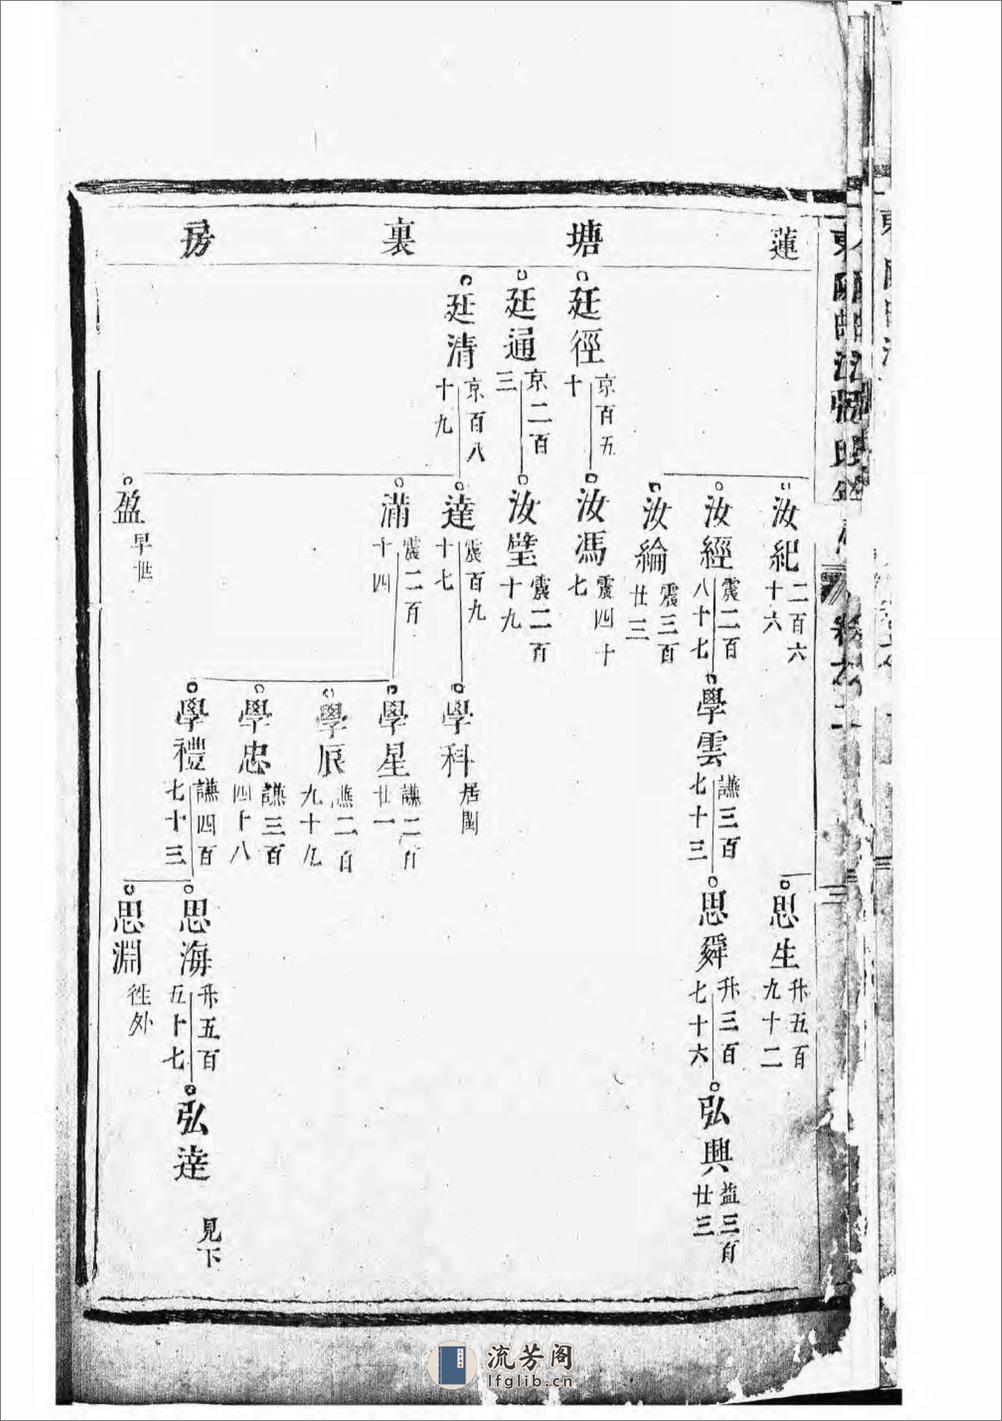 蓮塘裏房
汝紀 二百六十六
思生 升五百九十二
汝經 震二百八十七
學雲 謙三百七十三
思舜 升三百七十六
弘興 益三百廿三
汝綸 震三百廿三
廷徑 京百五十
汝馮 震四十七
廷通 京二百三
汝璧 震二百十九
廷清 京百八十九
達 震百九十七
學科 居閩
滿 震二百十四
學星 謙二百廿一
學辰 謙二百九十九
學忠 謙三百四十八
學禮 謙四百七十三
思海 升五百五十七
弘達 見下
盈 早世
思淵 徃外
卷之二
三
流芳阁
lfglib.cn